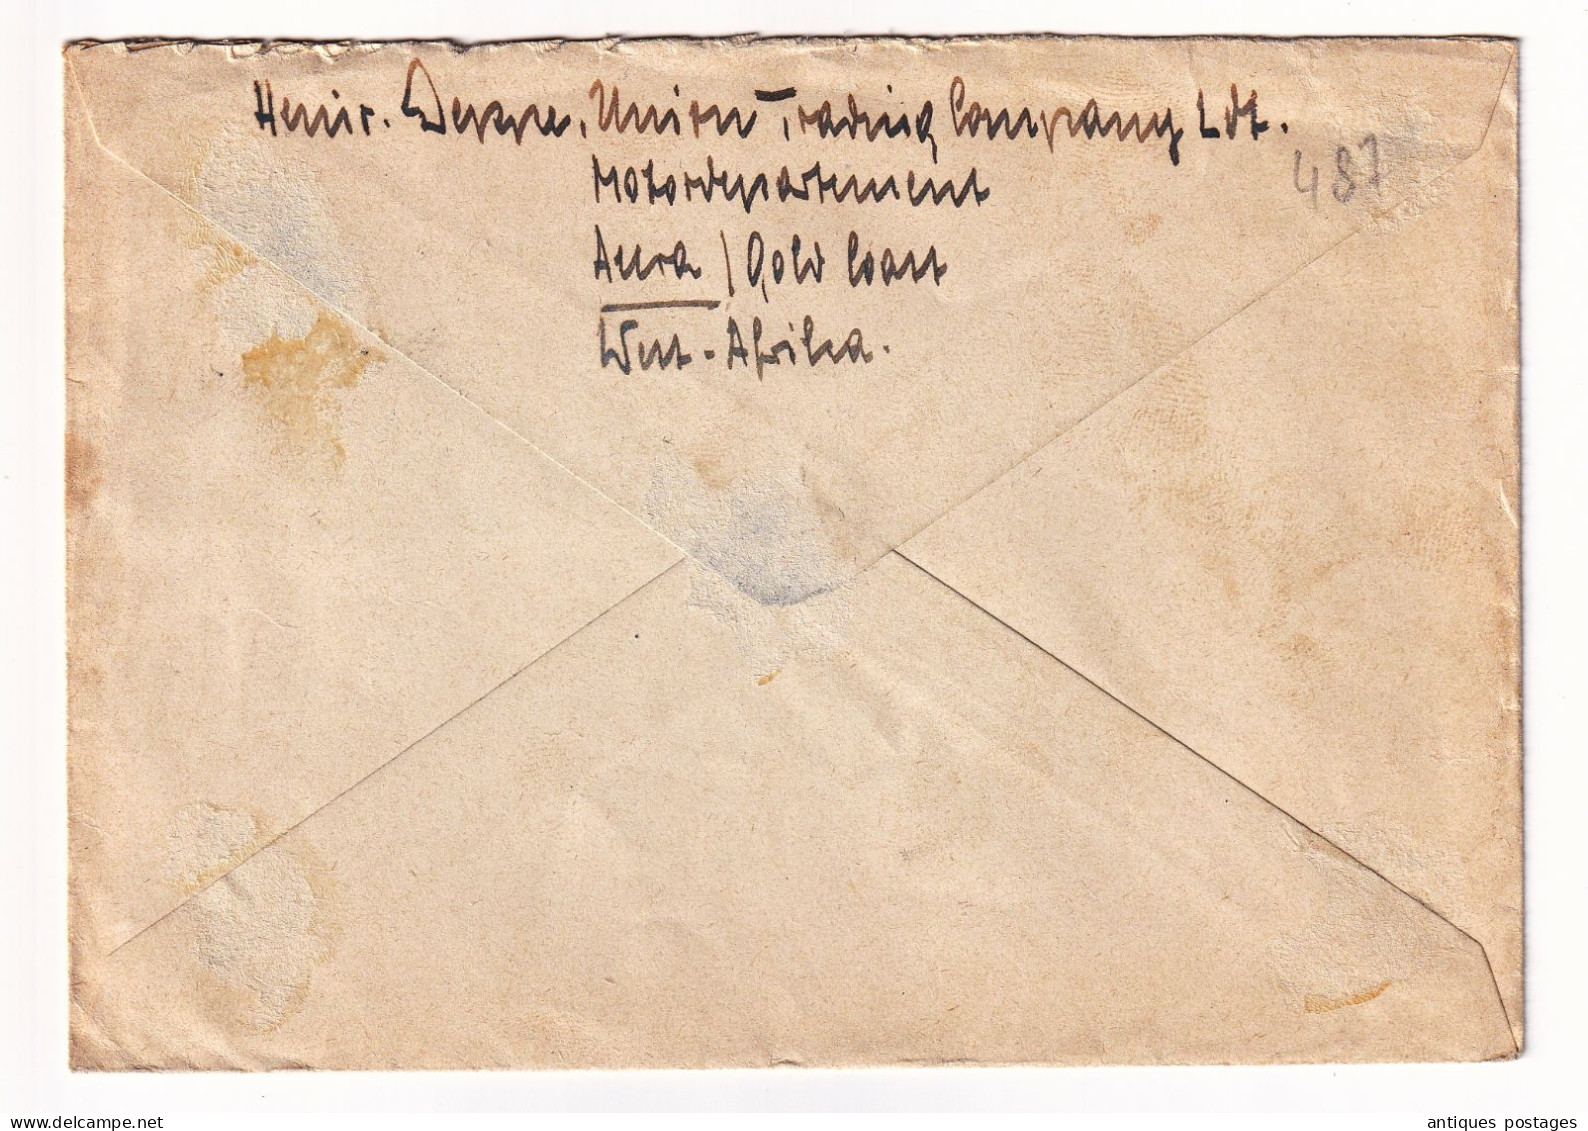 Heinr. Deppe, Union Trading Company Ldt.
487
Motordepartement
Accra / Gold Coast
West-Afrika.
Delcampe.net
antiques postages